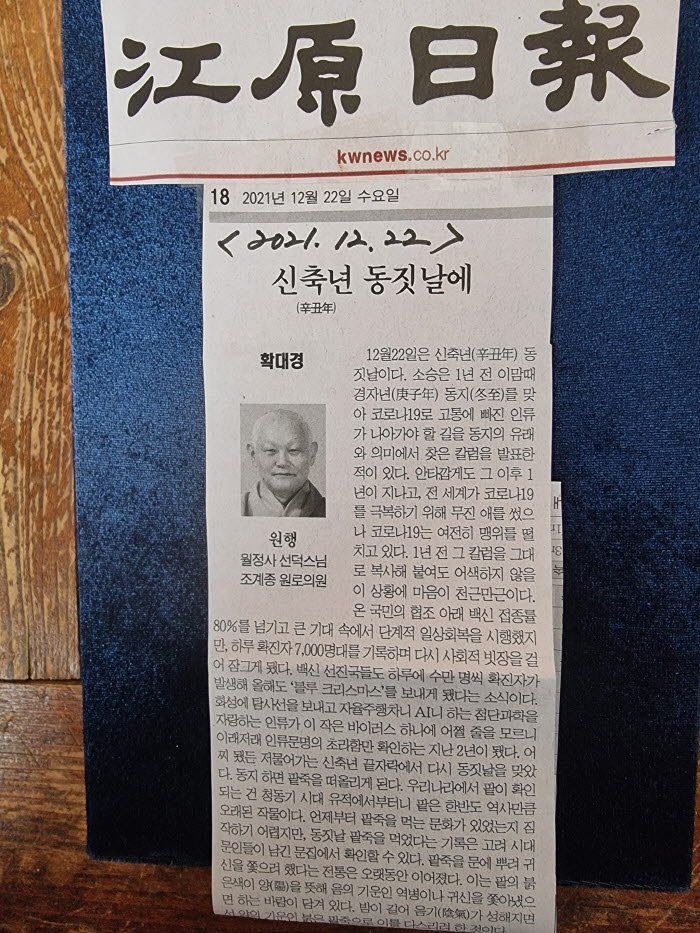 江原日報
kwnews.co.kr
18 2021년 12월 22일 수요일
<2021.12.22>
신축년 동짓날에
(辛丑年)
확대경
원행
월정사 선덕스님
조계종 원로의원
12월22일은 신축년(辛丑年) 동
짓날이다. 소승은 1년 전 이맘때
경자년(庚子年) 동지(冬至)를 맞
아 코로나19로 고통에 빠진 인류
가 나아가야 할 길을 동지의 유래
와 의미에서 찾은 칼럼을 발표한
적이 있다. 안타깝게도 그 이후 1
년이 지나고, 전 세계가 코로나19
를 극복하기 위해 무진 애를 썼으
나 코로나19는 여전히 맹위를 떨
치고 있다. 1년 전 그 칼럼을 그대
로 복사해 붙여도 어색하지 않을
이 상황에 마음이 천근만근이다.
온 국민의 협조 아래 백신 접종률
80%를 넘기고 큰 기대 속에서 단계적 일상회복을 시행했지
만, 하루 확진자 7,000명대를 기록하며 다시 사회적 빗장을 걸
어 잠그게 됐다. 백신 선진국들도 하루에 수만 명씩 확진자가
발생해 올해도 ‘블루 크리스마스’를 보내게 됐다는 소식이다.
화성에 탐사선을 보내고 자율주행차니 AI니 하는 첨단과학을
자랑하는 인류가 이 작은 바이러스 하나에 어쩔 줄을 모르니
이래저래 인류문명의 초라함만 확인하는 지난 2년이 됐다. 어
찌 됐든 저물어가는 신축년 끝자락에서 다시 동짓날을 맞았
다. 동지 하면 팥죽을 떠올리게 된다. 우리나라에서 팥이 확인
되는 건 청동기 시대 유적에서부터니 팥은 한반도 역사만큼
오래된 작물이다. 언제부터 팥죽을 먹는 문화가 있었는지 짐
작하기 어렵지만, 동짓날 팥죽을 먹었다는 기록은 고려 시대
문인들이 남긴 문집에서 확인할 수 있다. 팥죽을 문에 뿌려 귀
신을 쫓으려 했다는 전통은 오랫동안 이어졌다. 이는 팥의 붉
은색이 양(陽)을 뜻해 음의 기운인 역병이나 귀신을 쫓아냈으
면 하는 바람이 담겨 있다. 밤이 길어 음기(陰氣)가 성해지면
선 양의 기운인 붉은 팥죽으로 이를 다스리려 한 것이다